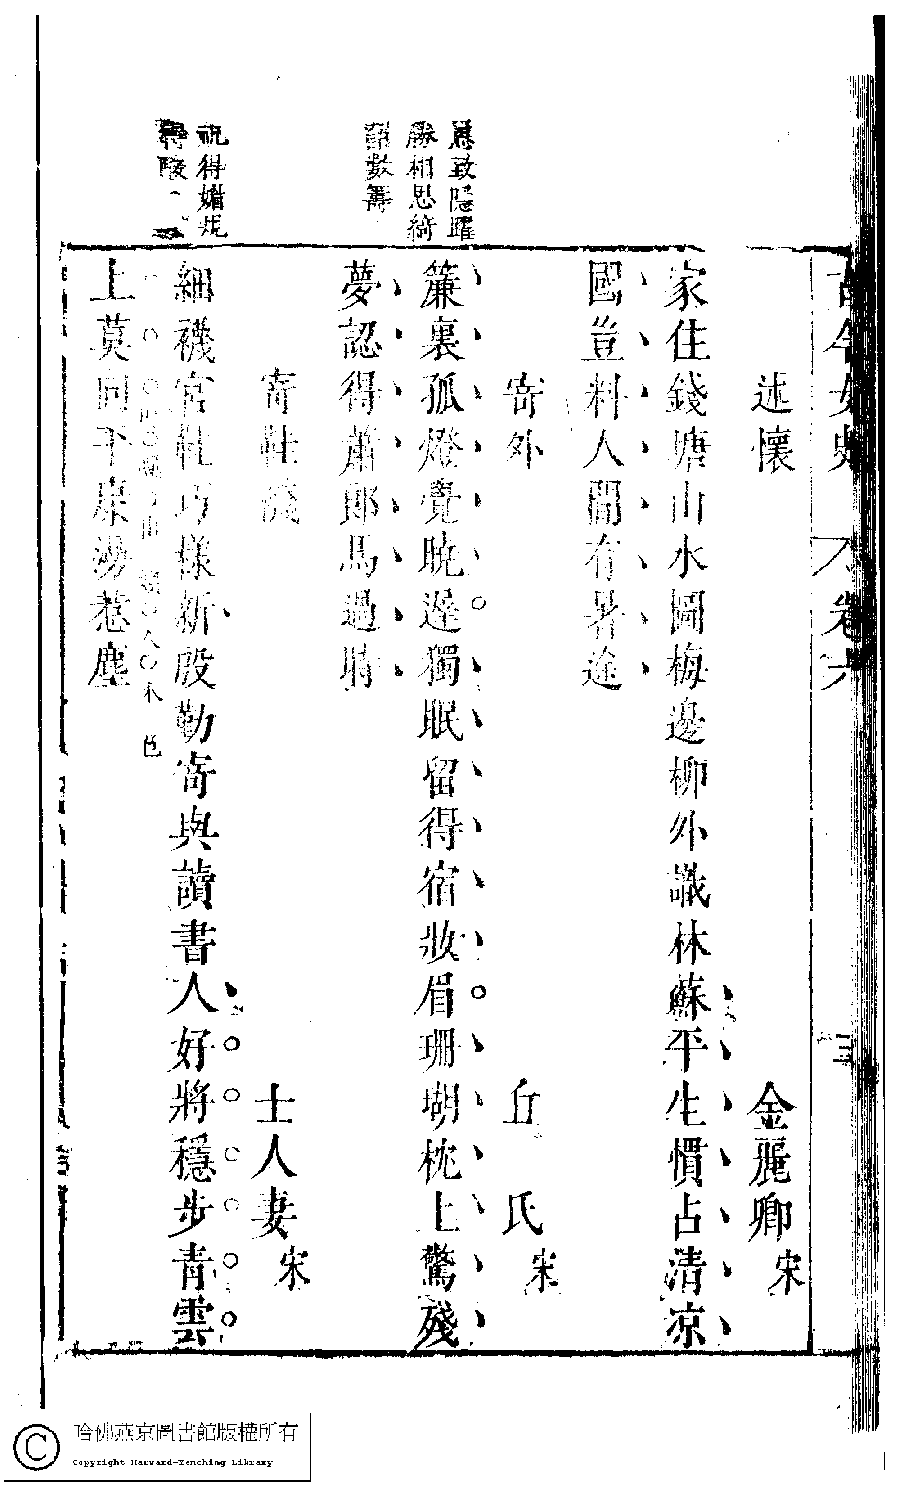 古今女史 卷六 三
述懷 金麗卿 宋
家住錢塘山水圖梅邊柳外識林蘇平生慣占清凉
國豈料人間有暑途
寄外 丘氏 宋
簾裏孤燈覺曉遲獨眠留得宿妝眉珊瑚枕上驚殘
夢認得蕭郎馬過時
寄鞋襪 士人妻 宋
細襪宮鞋巧樣新殷勤寄與讀書人好將穩步青雲
上莫向平康漫惹塵
勝相思綺
語數籌
祝得媚
哈佛燕京圖書館版權所有
Copyright Harvard-Yenching Library